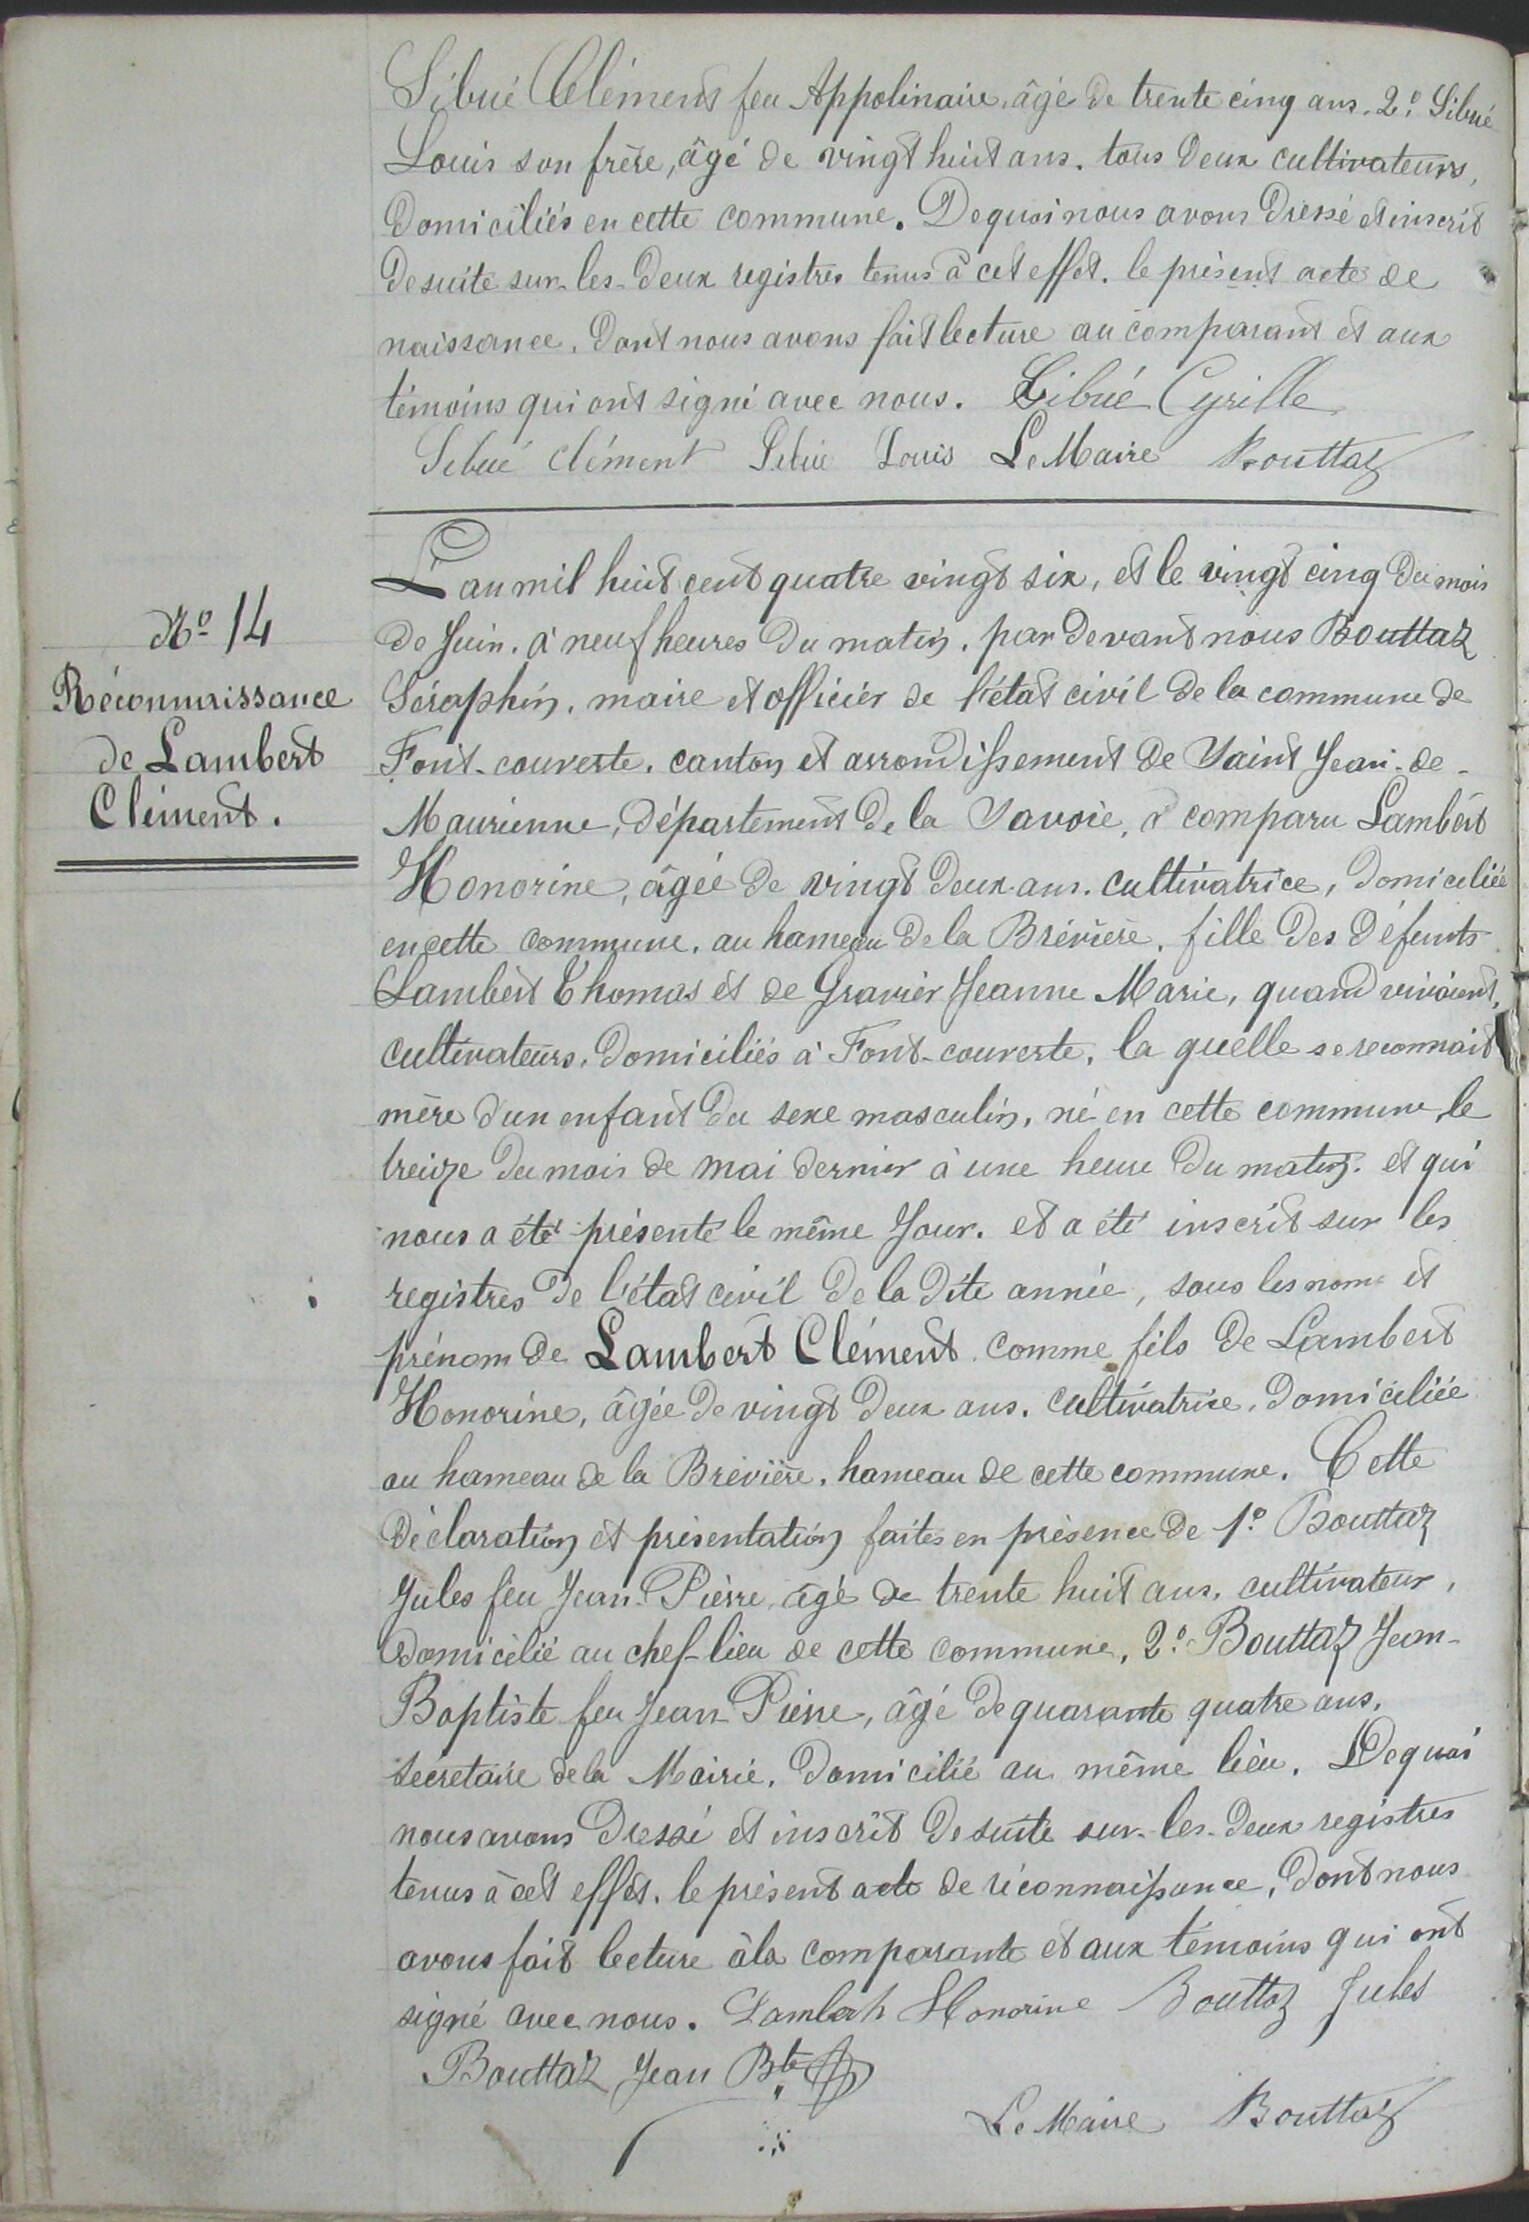 Sibué Clément feu Appolinaire, âgé de trente cinq ans. 2º Sibué
Louis son frère, âgé de vingt huit ans. tous deux cultivateurs,
domiciliés en cette commune. De quoi nous avons dressé et inscrit
de suite sur les deux registres tenus à cet effet. le présent acte de
naissance, dont nous avons fait lecture au comparant et aux
témoins qui ont signé avec nous. Sibué Cyrille
Sibué Clément Sibué Louis Le Maire Bouttaz
Nº 14
Réconnaissance
de Lambert
Clément.
L'an mil huit cent quatre vingt six, et le vingt cinq du mois
de Juin. à neuf heures du matin. par devant nous Bouttaz
Séraphin, maire et officier de l'état civil de la commune de
Font-couverte, canton et arrondissement de Saint Jean-de-
Maurienne, département de la Savoie, a comparu Lambert
Honorine, âgée de vingt deux ans. cultivatrice, domiciliée
en cette commune. au hameau de la Brévière. fille des défunts
Lambert Thomas et de Gravier Jeanne Marie, quand vivaient,
cultivateurs, domiciliés à Font-couverte, la quelle se reconnait
mère d'un enfant du sexe masculin, né en cette commune, le
treize du mois de mai dernier à une heure du matin. et qui
nous a été présenté le même Jour. et a été inscrit sur les
registres de l'état civil de la dite année, sous les nom et
prénom de Lambert Clément. comme fils de Lambert
Honorine, âgée de vingt deux ans. Cultivatrice, domiciliée
au hameau de la Brévière, hameau de cette commune. Cette
déclaration et présentation faites en présence de 1º Bouttaz
Jules feu Jean-Pierre âgé de trente huit ans, cultivateur,
domicilié au chef-lieu de cette commune, 2º Bouttaz Jean-
Baptiste feu Jean-Pierre, âgé de quarante quatre ans,
secrétaire de la Mairie, domicilié au même lieu. De quoi
nous avons dressé et inscrit de suite sur les deux registres
tenus à cet effet, le présent acte de réconnaissance, dont nous
avons fait lecture à la comparante et aux témoins qui ont
signé avec nous. Lambert Honorine Bouttaz Jules
Bouttaz Jean Bte
Le Maire Bouttaz